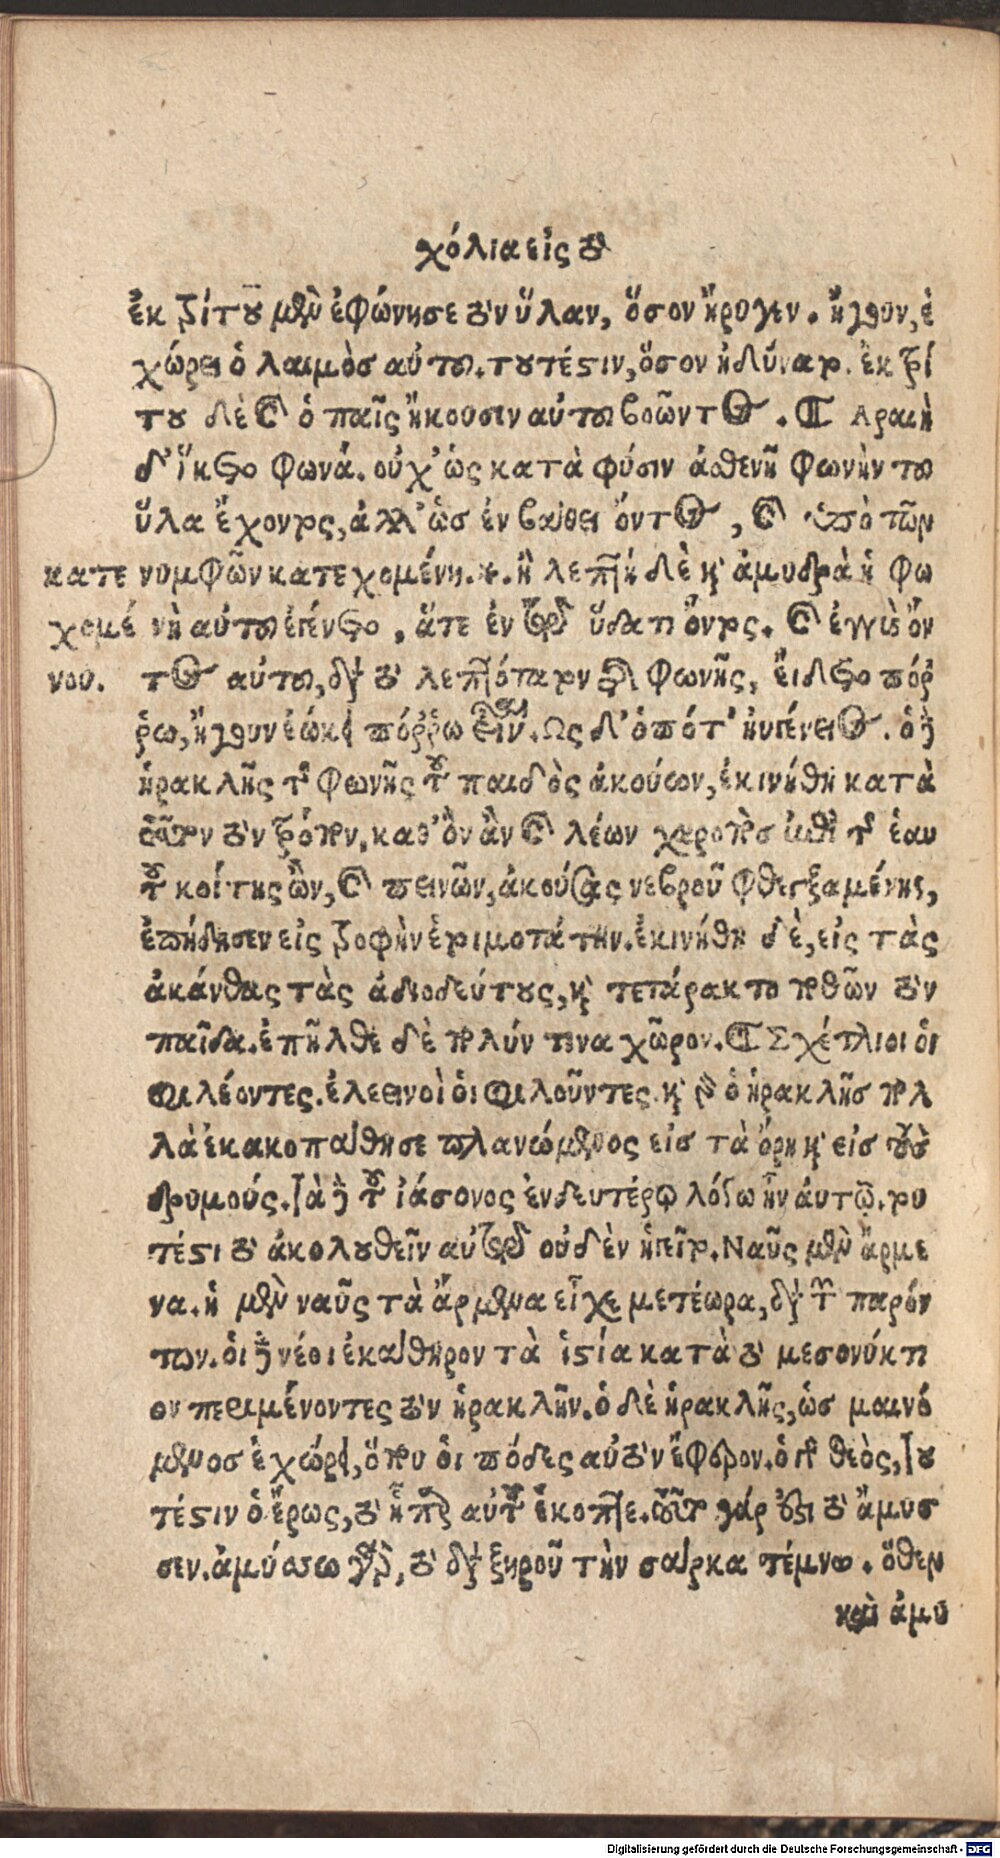 χόλια εἰς τὸ
ἐκ τρίτου μὲν ἐφώνησε τὸν ὕλαν, ὅσον ἤρυγεν. ἤγουν, ἐ
χώρει ὁ λαιμὸσ αὐτοῦ. τουτέστιν, ὅσον ἠδύνατο. ἐκ τρί
του δὲ καὶ ὁ παῖς ἤκουσιν αὐτοῦ βοῶντος. Αραιὴ
δ' ἵκετο φωνά. οὐχ' ὡς κατὰ φύσιν ἀσθενῆ φωνὴν τοῦ
ὕλα ἔχοντος, ἀλλ' ὡσ ἐν βάθει ὄντος, καὶ ὑπὸ τῶν
νυμφῶν κατεχομένη. ἢ λεπτὴ δὲ καὶ ἀμυδρὰ ἡ φω
νὴ αὐτοῦ ἐγένετο, ἅτε ἐν τῷ ὕδατι ὄντος. καὶ ἐγγὺς ὄν
τος αὐτοῦ, διὰ τὸ λεπτότατον τῆς φωνῆς, εἴδετο πόρ
ῥω, ἤγουν ἐώκει πόῤῥω εἶναι. Ως δ' ὁπότ' ἠυγένειος. ὁ δὲ
ἡρακλῆς τῆς φωνῆς τοῦ παιδὸς ἀκούων, ἐκινήθη κατὰ
τοῦτον τὸν τρόπον, καθ' ὃν ἂν καὶ λέων
τοῦ κοίτης ὢν, καὶ πεινῶν, ἀκούσας νεβροῦ φθεγξαμένης,
ἐπήδησεν εἰς τροφὴν ἑτιμοτάτην. ἐκινήθη δὲ, εἰς τὰς
ἀκάνθας τὰς ἀδιοδεύτους, καὶ τετάρακτο ποθῶν τὸν
παῖδα. ἐπῆλθε δὲ πολύν τινα χῶρον. Σχέτλιοι ὁι
φιλέοντες. ἐλεεινοὶ ὁι φιλοῦντες. καὶ γὰρ ὁ ἡρακλῆσ πολ
λὰ ἐκακοπάθησε πλανώμενος εἰσ τὰ ὄρη καὶ εἰσ τοὺσ
δρυμούς. τὰ δὲ τοῦ ἰάσονος ἐν δευτέρῳ λόγω ἦν ἀυτῷ. του
τέστι τὸ ἀκολουθεῖν αὐτῷ οὐδὲν ἡγεῖτο. Ναῦς μὲν ἄρμε
να. ἡ μὲν ναῦς τὰ ἄρμενα εἶχε μετέωρα, διὰ τῶν παρόν
των. ὁι δὲ νέοι ἐκάθηρον τὰ ἱστία κατὰ τὸ μεσονύκτι
ον περιμένοντες τὸν ἡρακλῆν. ὁ δὲ ἡρακλῆς, ὡσ μαινό
μενοσ ἐχώρει, ὅπου ὁι πόδες αὐτὸν ἔφερον. ὁ γὰρ θεὸς, του
τέστιν ὁ ἔρως, τὸ ἧπαρ αὐτοῦ ἔκοπτε. τοῦτο γάρ ἐστι τὸ ἄμυσ
σεν. ἀμύσσω γὰρ, τὸ διὰ ξηροῦ τὴν σάρκα τέμνω. ὅθεν
καὶ ἀμυ
κατε
χομέ
νου.
Digitalisierung gefördert durch die Deutsche Forschungsgemeinschaft - DFG